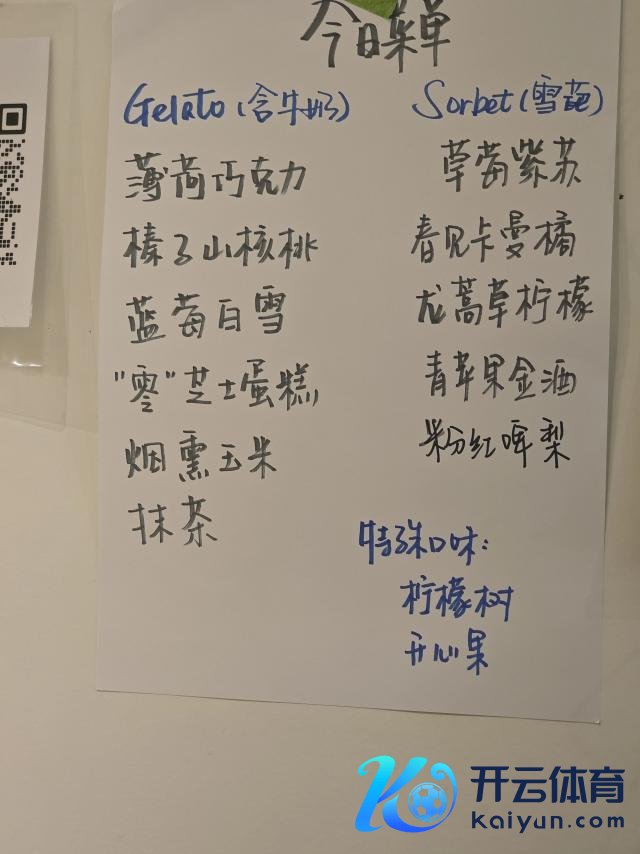 今日菜单
Gelato(含牛奶)
薄荷巧克力
榛子山核桃
蓝莓白雪
"零"芝士蛋糕
烟熏玉米
抹茶
Sorbet(雪葩)
草莓紫苏
春见卡曼橘
龙蒿草柠檬
青苹果金酒
粉红啤梨
特殊口味:
柠檬树
开心果
开云体育
kaiyun.com